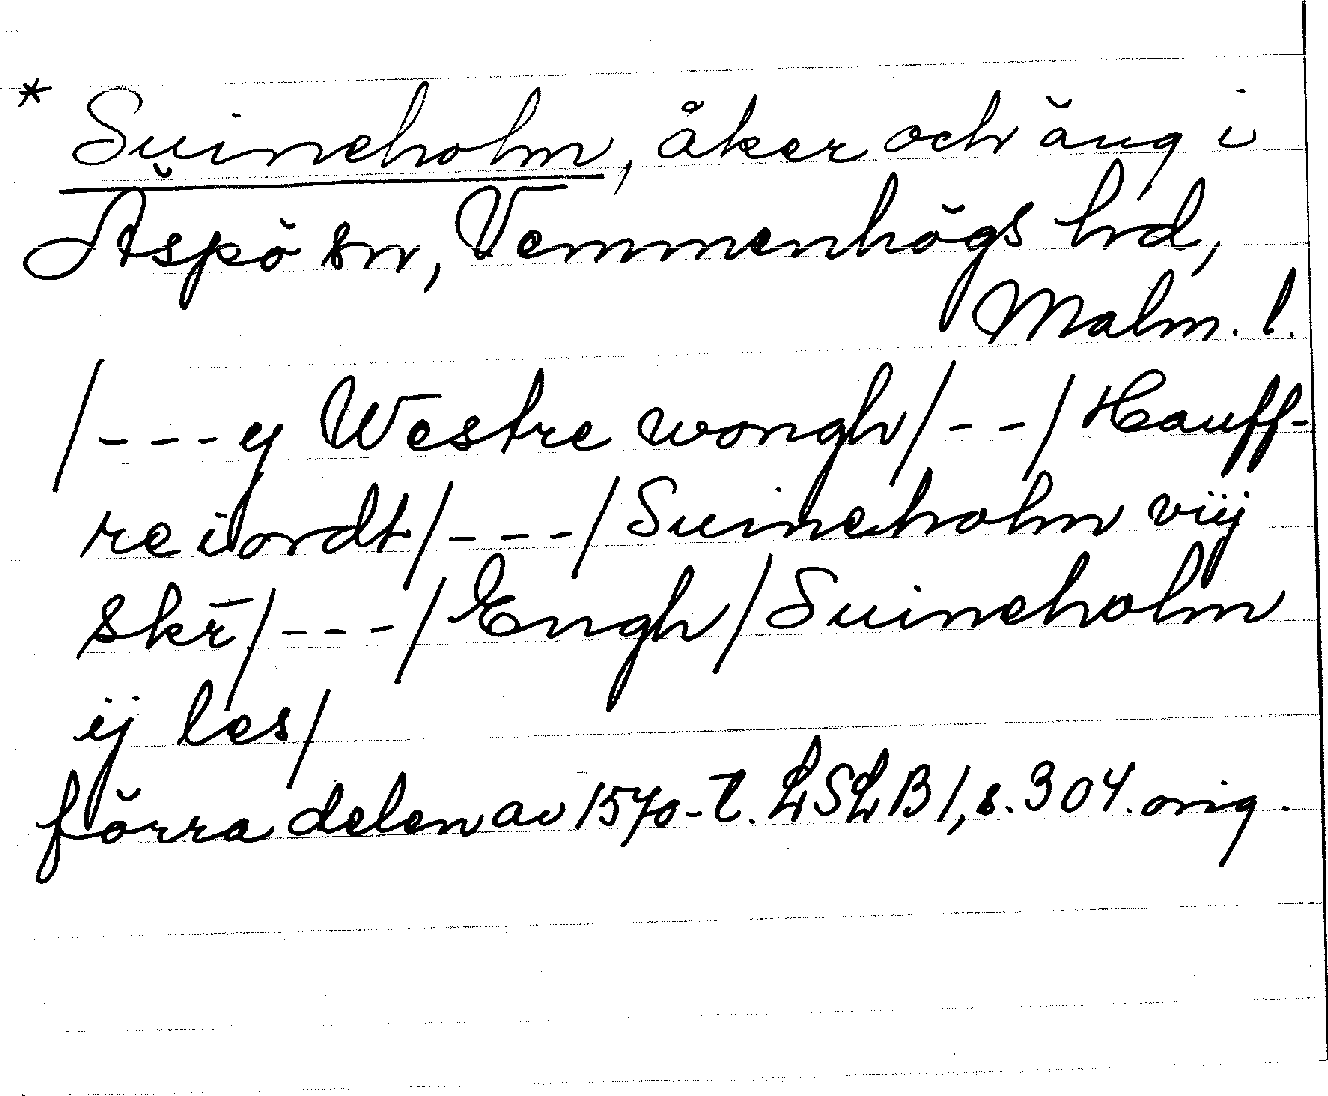 * Suineholm, åker och äng i
Äspö sn, Vemmenhögs hd,
Malm. l.
/---y Westre wongh/--/Hauff-
re iordt/---/Suineholm viij
skr̄/---/Engh/Suineholm
ij les/
förra delen av 1570-t. LSLB 1, s. 304. orig.